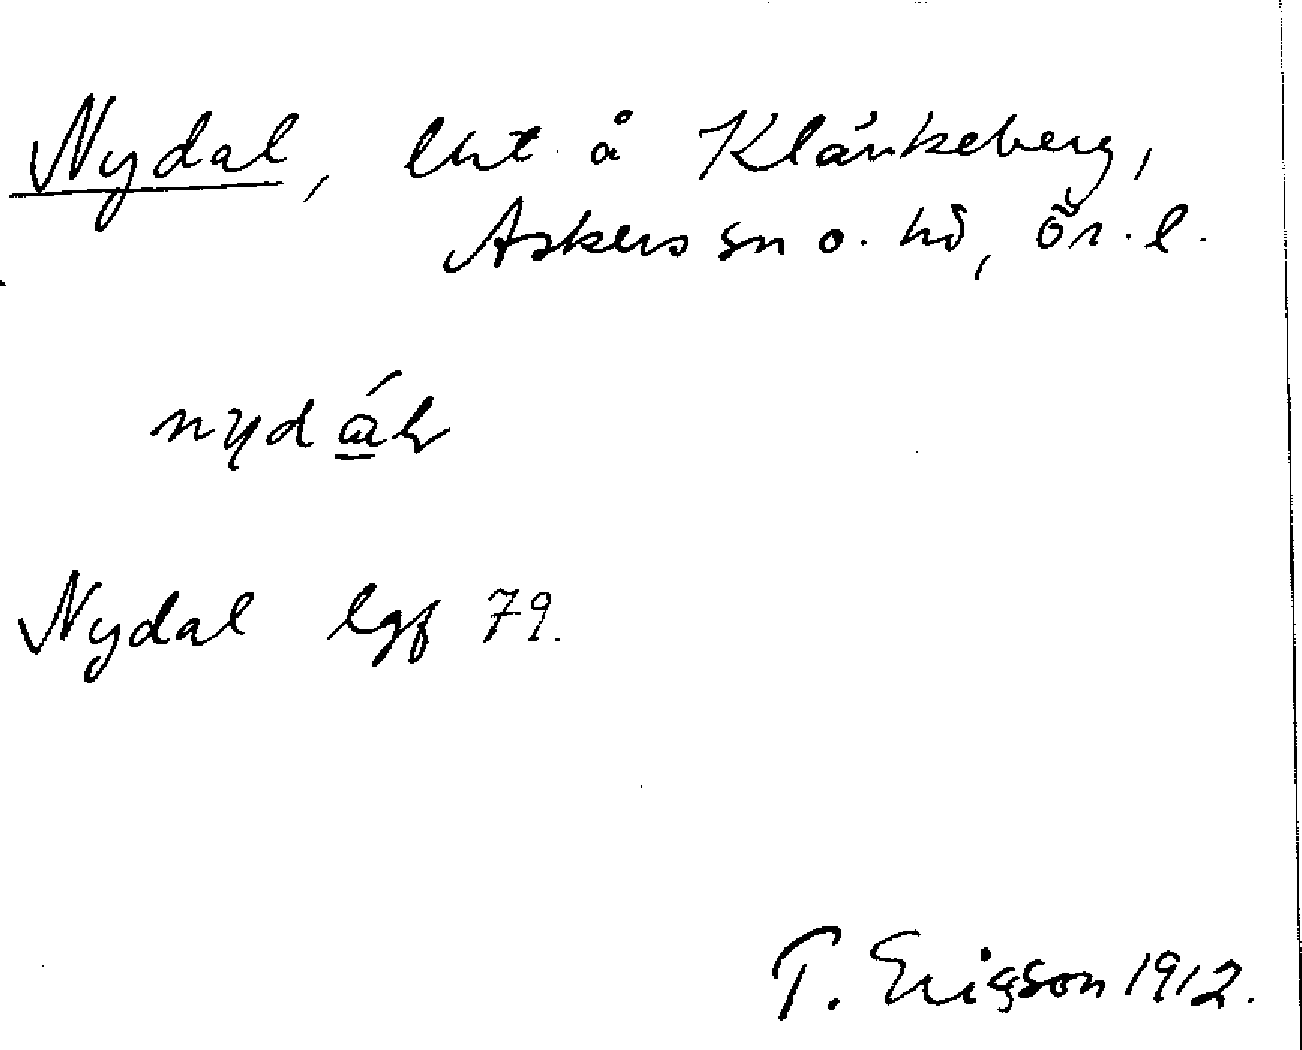 Nydal, lht å Klänkeberg,
Askers sn o. hd, Ör. l.
Nydal lgf 79.
T. Ericson 1912.